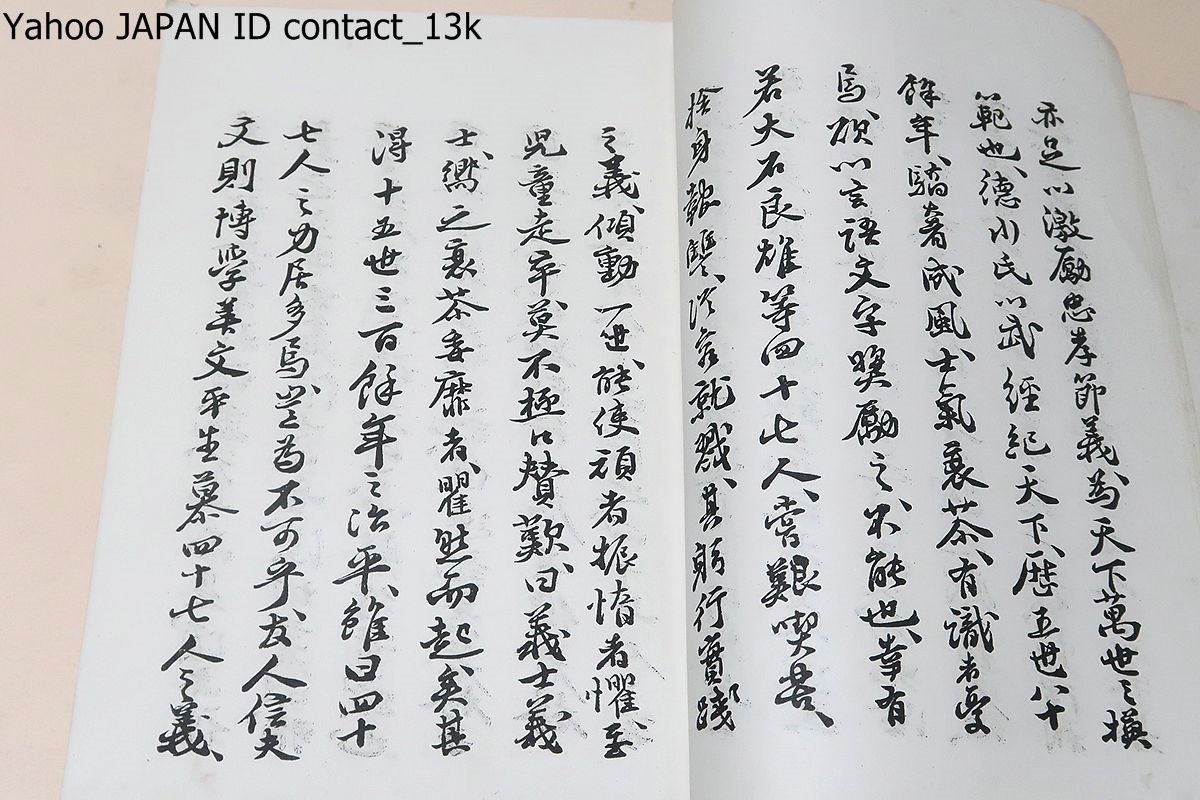 Yahoo JAPAN ID contact_13k
亦足以激勵忠孝節義為天下萬世之模
範也、德川氏以武經紀天下、歷五世八十
餘年、驕奢成風、士氣衰苶、有識者憂
焉、欲以言語文字獎勵之、不能也、幸有
若大石良雄等四十七人、嘗艱喫苦、
捨身報讐、從容就戮、其躬行實踐
之義、傾動一世、能使頑者振惰者懼、至
兒童走卒、莫不極口贊歎、曰義士義
士、嚮之衰苶委靡者、瞿然而起矣、其
得十五世三百餘年之治平、雖曰四十
七人之力居多焉、豈為不可乎、友人信夫
文則博學善文、平生慕四十七人之義、